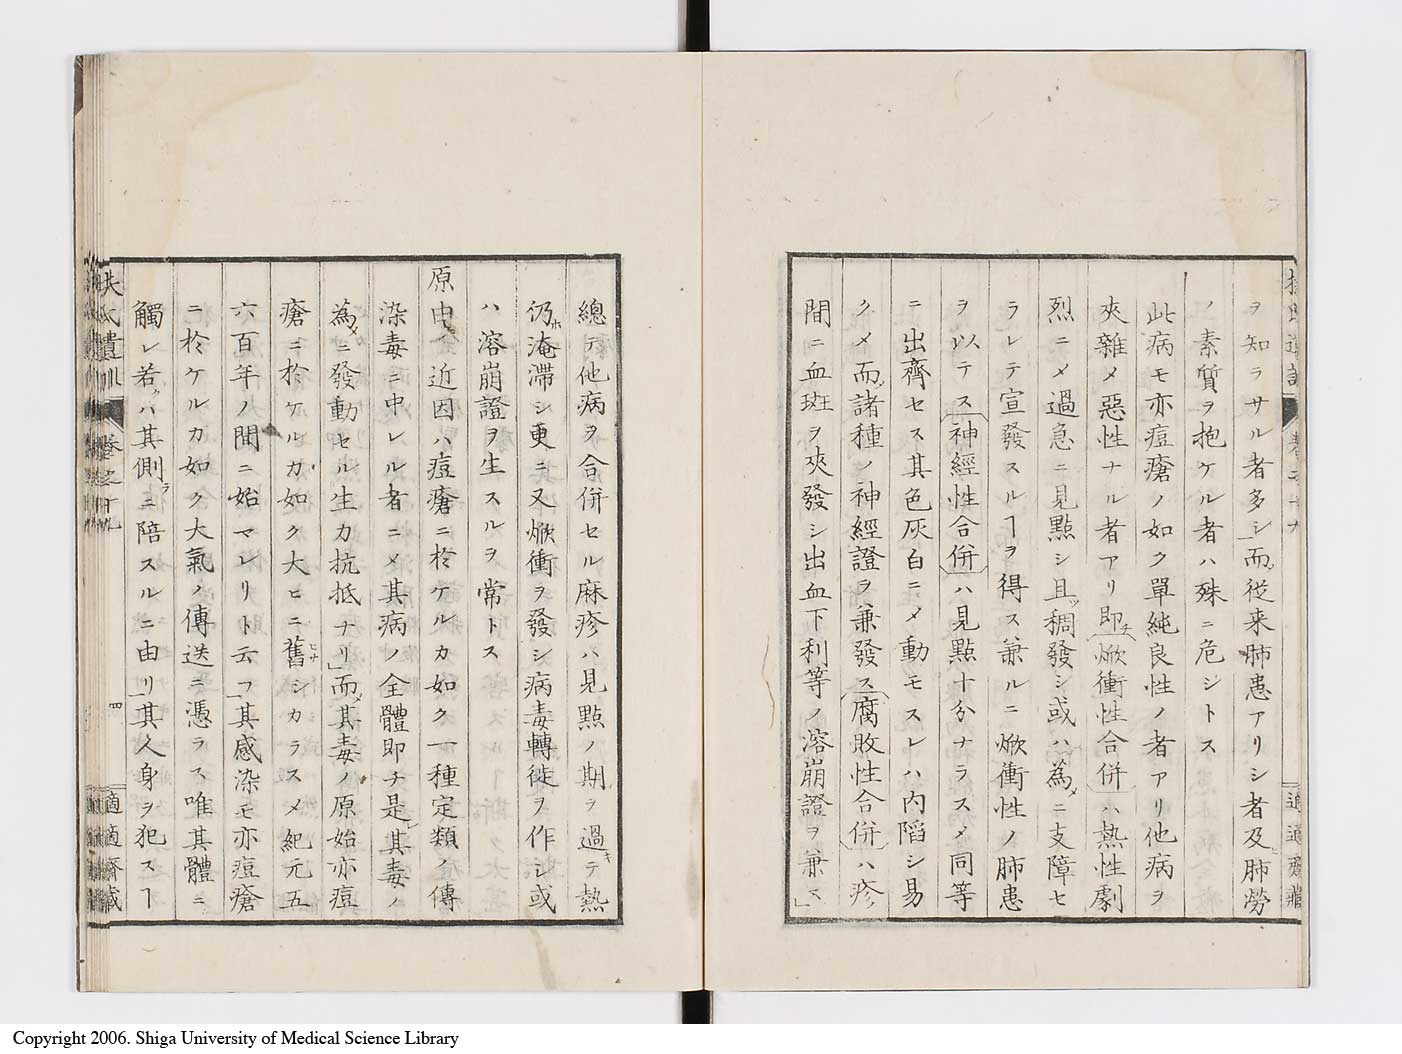 ヲ知ラサル者多シ而従来肺患アリシ者及肺勞
ノ素質ヲ抱ケル者ハ殊ニ危シトス
此病モ亦痘瘡ノ如ク單純良性ノ者アリ他病ヲ
夾雜メ惡性ナル者アリ即焮衝性合併ハ熱性劇
烈ニメ過急ニ見點シ且稠發シ或ハ為ニ支障セ
ラレテ宣發スルヿヲ得ス兼ルニ焮衝性ノ肺患
ヲ以テス神經性合併ハ見點十分ナラスメ同等
ニ出齊セス其色灰白ニメ動モスレハ内陷シ易
クメ而諸種ノ神經證ヲ兼發ス腐敗性合併ハ疹
間ニ血斑ヲ夾發シ出血下利等ノ溶崩證ヲ兼ヌ
總テ他病ヲ合併セル麻疹ハ見點ノ期ヲ過テ熱
仍淹滯シ更ニ又焮衝ヲ發シ病毒轉徙ヲ作シ或
ハ溶崩證ヲ生スルヲ常トス
原由 近因ハ痘瘡ニ於ケルカ如ク一種定類ノ傳
染毒ニ中レル者ニメ其病ノ全體即チ是其毒ノ
為ニ發動セル生力抗抵ナリ而其毒ノ原始亦痘
瘡ニ於ケルカ如ク大ヒニ舊シカラスメ紀元五
六百年ノ間ニ始マレリト云フ其感染モ亦痘瘡
ニ於ケルカ如ク大氣ノ傳送ニ憑ラス唯其體ニ
觸レ若ハ其側ニ陪スルニ由リ其人身ヲ犯スヿ
扶氏遺訓 卷之十九
四
適適齋藏